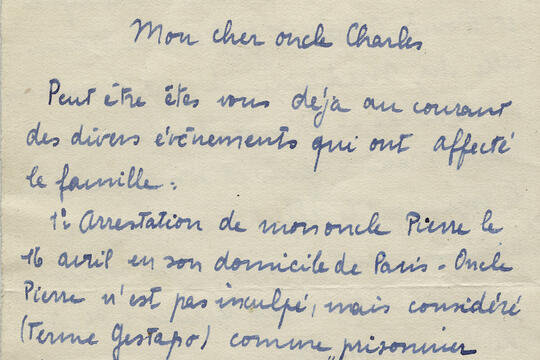 Mon cher oncle Charles
Peut être êtes vous déja au courant
des divers évènements qui ont affecté
le famille :
1º Arrestation de mon oncle Pierre le
16 avril en son domicile de Paris - Oncle
Pierre n'est pas inculpé, mais considéré
(Terme Gestapo) comme „prisonnier